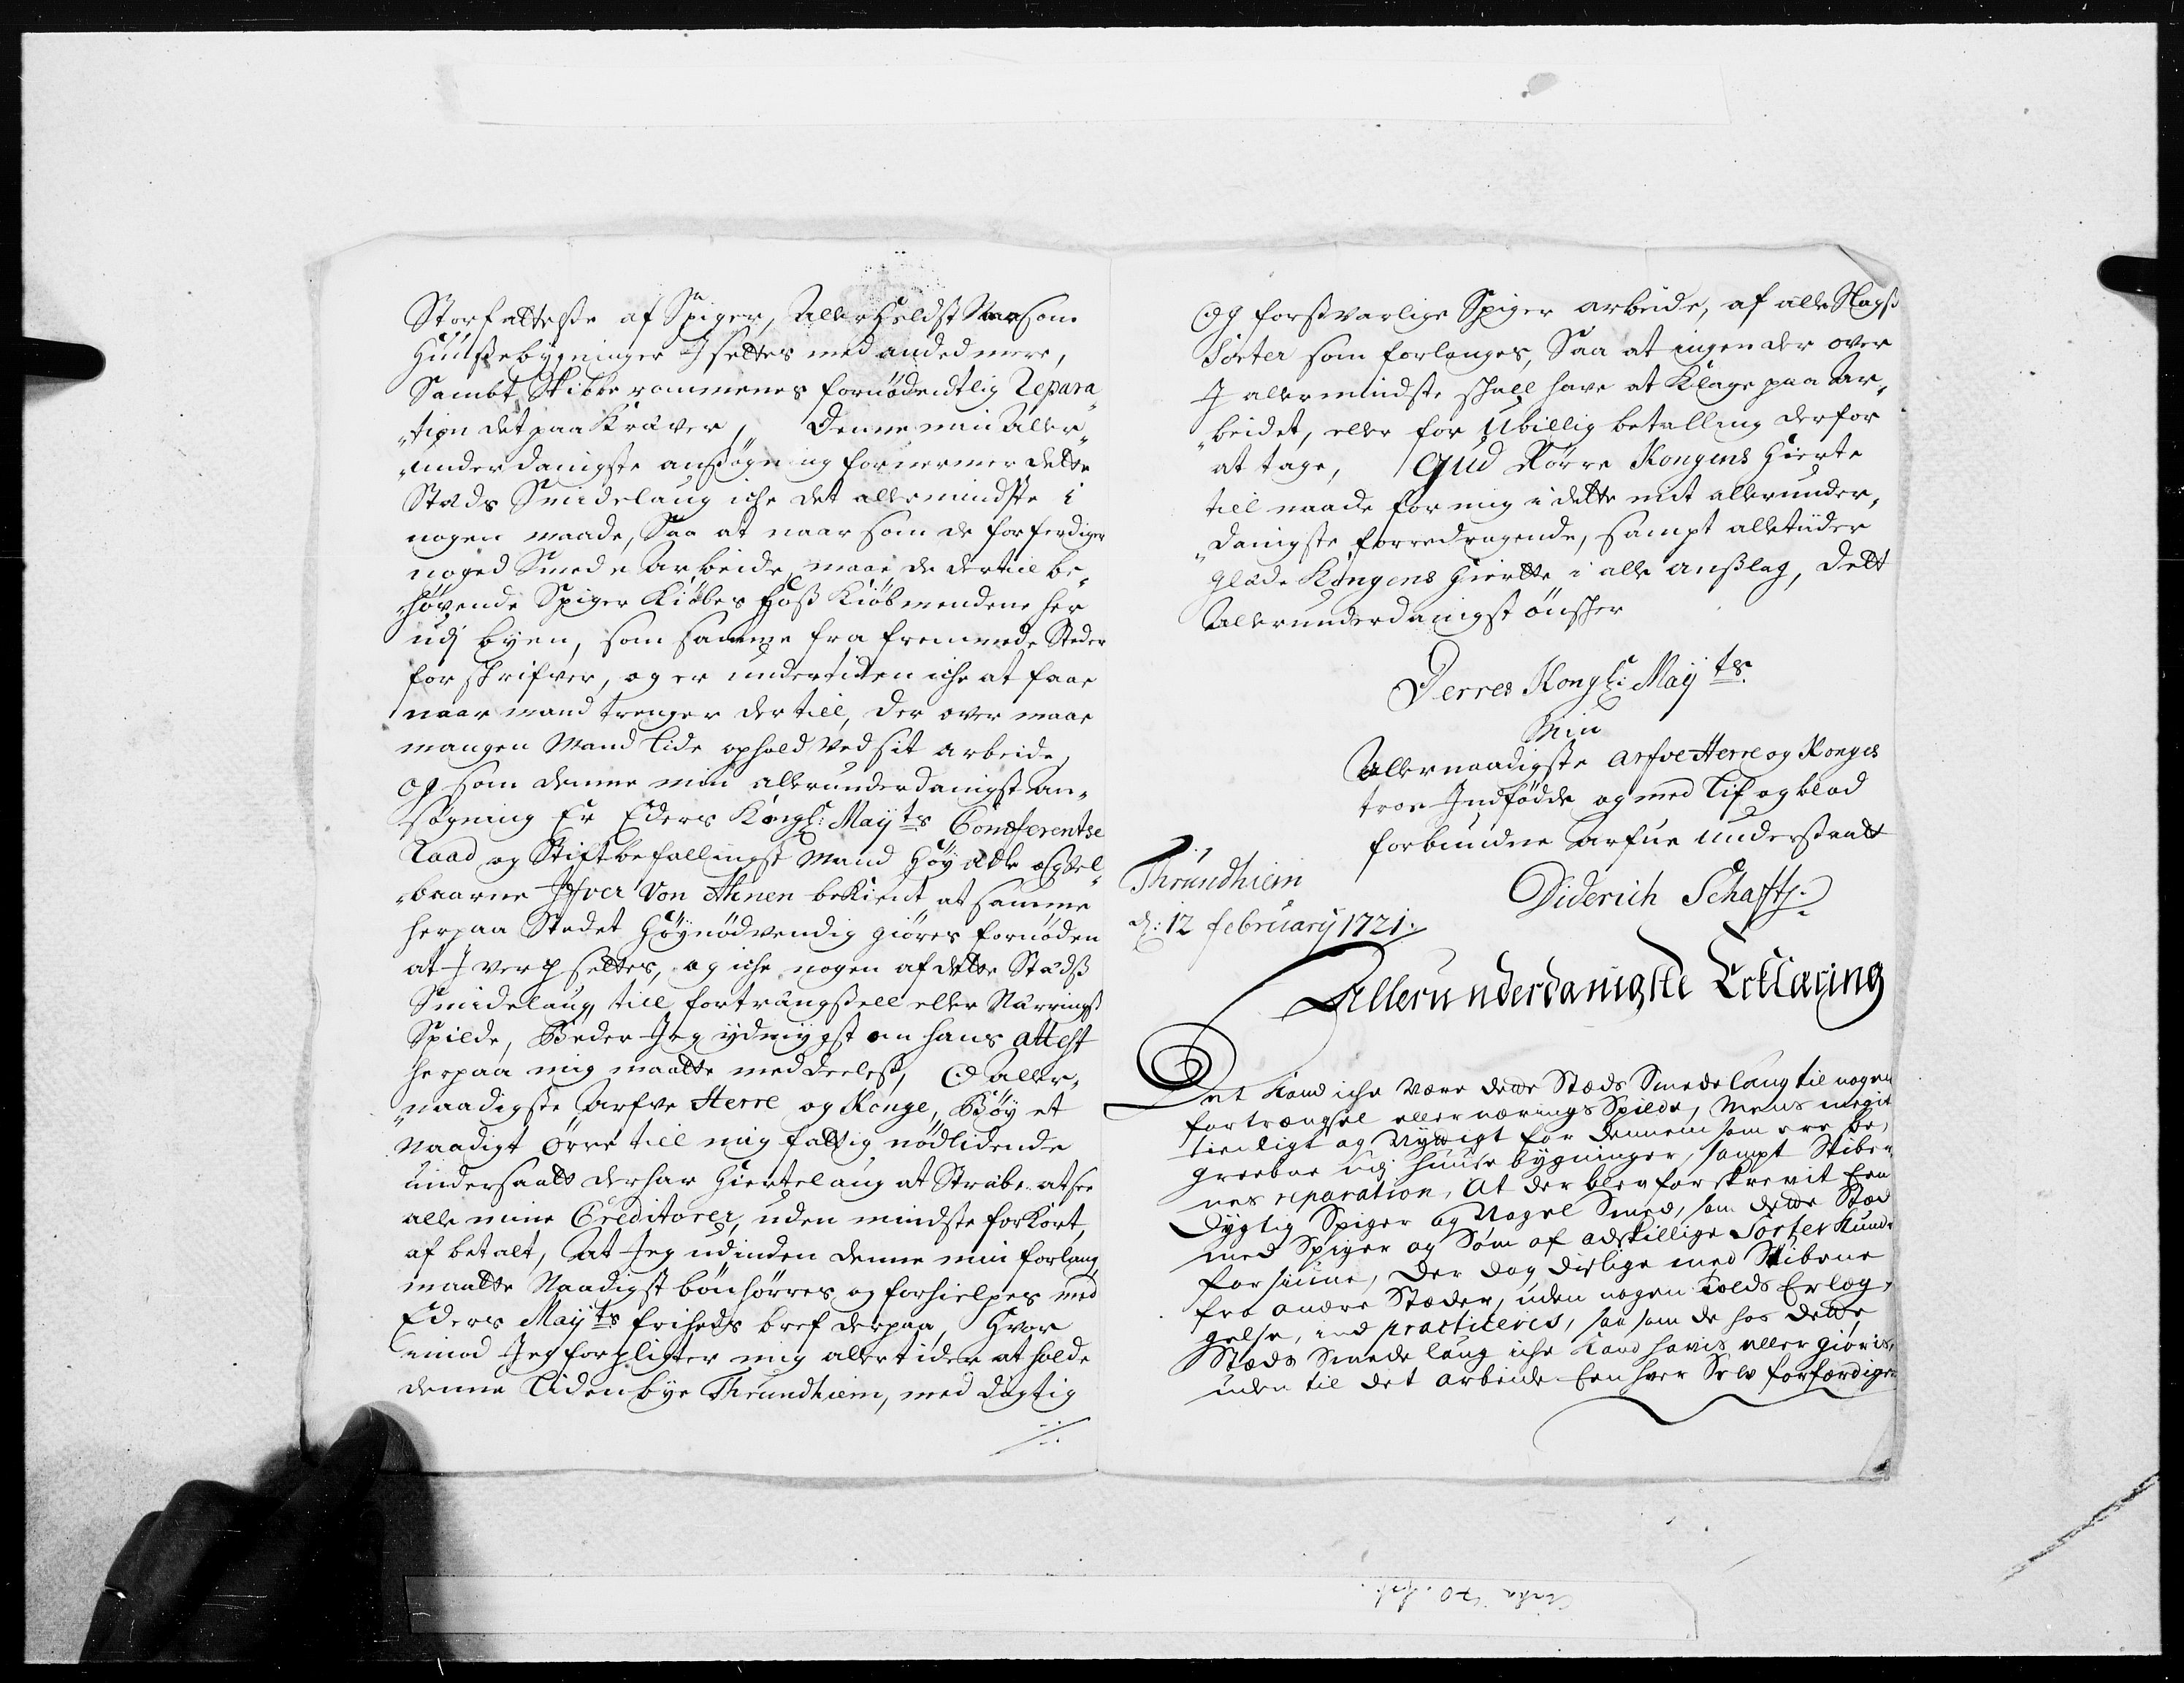 Storfattelse af Spiger, Aller Heldst Naar som
Huusebÿgninger Isettes med anded mere,
Sambt Skibbe rommenes fornødentlig Repara
„tion det paa Kræver, Denne min Aller„
„underdanigste ansøgning fornermer dette
Stæds Smidelaug iche det allermindste i
nogen maade, Saa at naar som de forferdiger
noged Smede Arbeide, maae de dertil be„
høvende Spiger Kiøbes hoß Kiøbmendene her
udj byen, som samme fra fremmede Steder
forskrifver, og er undertiden iche at faae
naar mand trenger der till, der over maae
mangen Mand lide ophold ved sit arbeide,
og som denne min allerunderdanigst an„
søgning Er Eders Kongl: Maÿts Conferentse
Raad og Stiftbefallingst Mand Høÿ ædle og Vel„
„baarne Ifver Von Ahnen bekient at samme
her paa Stedet Høÿnødvendig giøres fornøden
at I Verch settes, og iche nogen af dette Stædß
Smidelaug till fortrængßell eller Nærringß
Spilde, Beder Jeg ÿdmÿgst om hans attest
herpaa mig maatte meddeeles, O aller„
„naadigste Arfve Herre og Konge, Bøÿ et
Naadigt Øre till mig fattig nødlidende
undersaatt der har Hierte laug at Stræbe at see
alle mine Creditorer, uden mindste forKort,
af betalt, At Jeg udinden denne min forlang
maatte Naadigst bønhørres og forhielpes med
Eders Maÿts friheds bref derpaa, Hvor
imod Jeg forpligter mig allertider at holde
denne liden bÿe Thrundhiem, med dÿgtig
og forsvarlige Spiger arbeide, af alle Slagß
Sorter som forlanges, Saa at ingen der over
I allermindste skall have at Klage paa Ar„
„beidet, eller for Ubillig betalling derfor
at tage, Gud Rørre Kongens Hierte
till naade for mig i dette mit allerunder„
„danigste forredragende, sampt alletider
Glæde Kongens Hiertte i alle anßlag, Dett
Allerunderdanigst ønsker
Derres Kongl: Maÿts
Min
Allernaadigste Arfve Herre og Konges
troe Indfødde og med Lif og blod
forbundne Arfue undersaatt
Diderich Schaft
Thrundhiem
d: 12 februarÿ 1721.
Allerunderdanigste Erklæring
Det kand iche være dette Stæds Smede laug til nogen
fortrængsel eller nærings Spilde, Mens megit
tienligt og Nÿttigt for dennem som ere be„
greebne udj huuse bÿgninger, sampt Skibe„
nes reparation, At der blev forskrevit Een
Dÿgtig Spiger og Nagel Smed, som dette Stæd
med Spiger og Søm af adskillige Sorter Kunde
forsiune, Der dog dislige med Skibene
fra andre Stæder, uden nogen Tolds Erlæg„
gelse, ind practiceres, saa som de hos dette
Stæds Smede laug iche kand havis eller giøris,
uden til det arbeide Een hver Selv forfærdiger